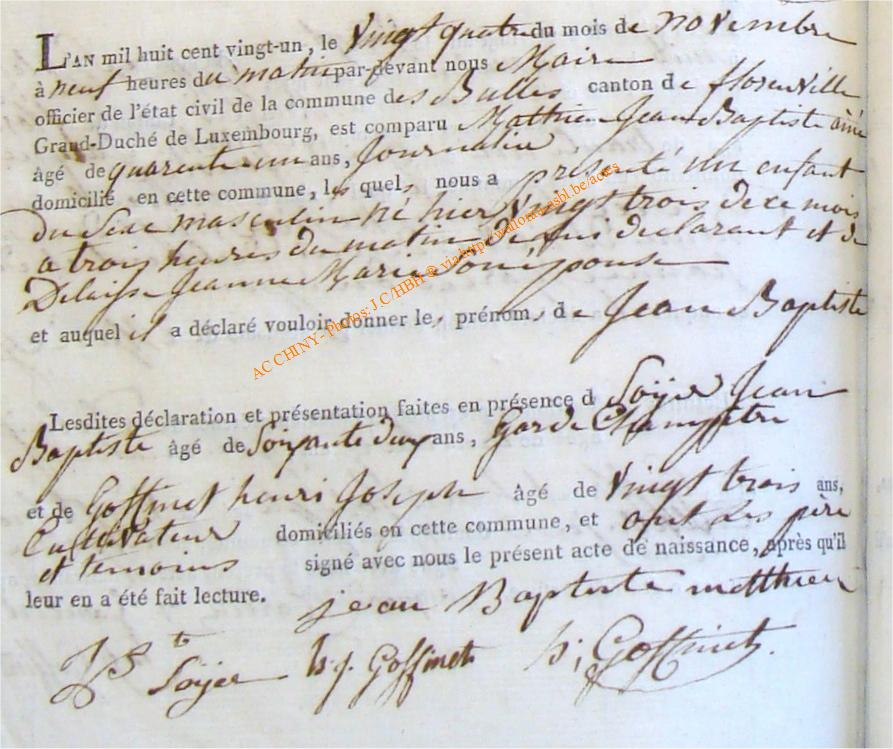 L'AN mil huit cent vingt-un, le vingt quatre du mois de novembre
à neuf heures du matin par-devant nous Maire
officier de l'état civil de la commune des Bulles canton de florenville
Grand-Duché de Luxembourg, est comparu Mathieu Jean Baptiste ainé
âgé de quarente un ans, Journalier
domicilié en cette commune, le quel, nous a presenté un enfant
du Sexe masculin né hier vingt trois de ce mois
a trois heures du matin de lui declarant et de
Delaisse Jeanne Marie son épouse
et auquel il a déclaré vouloir donner les prénoms de Jean Baptiste
Lesdites déclaration et présentation faites en présence d Soÿer Jean
Baptiste âgé de Soixante deux ans, Garde Champetre
et de Goffinet henri Joseph âgé de vingt trois ans,
Cultivateur domiciliés en cette commune, et ont les père
et temoins signé avec nous le présent acte de naissance, après qu'il
leur en a été fait lecture.
jean Baptiste matthieu
JBte Soÿer h. j. Goffinet h; Goffinet.
AC CHINY - Photos: J C/HBH ® via http://wallonia-asbl.be/actes